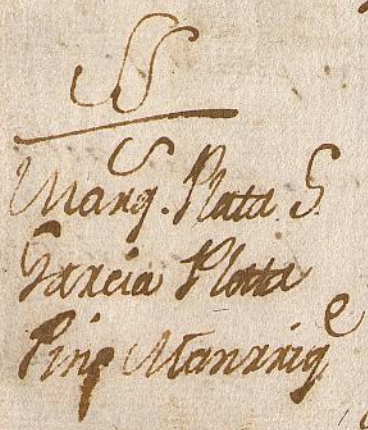 SS
S
Marq. Plata S
Garcia Plata
Pino Manrriq^e